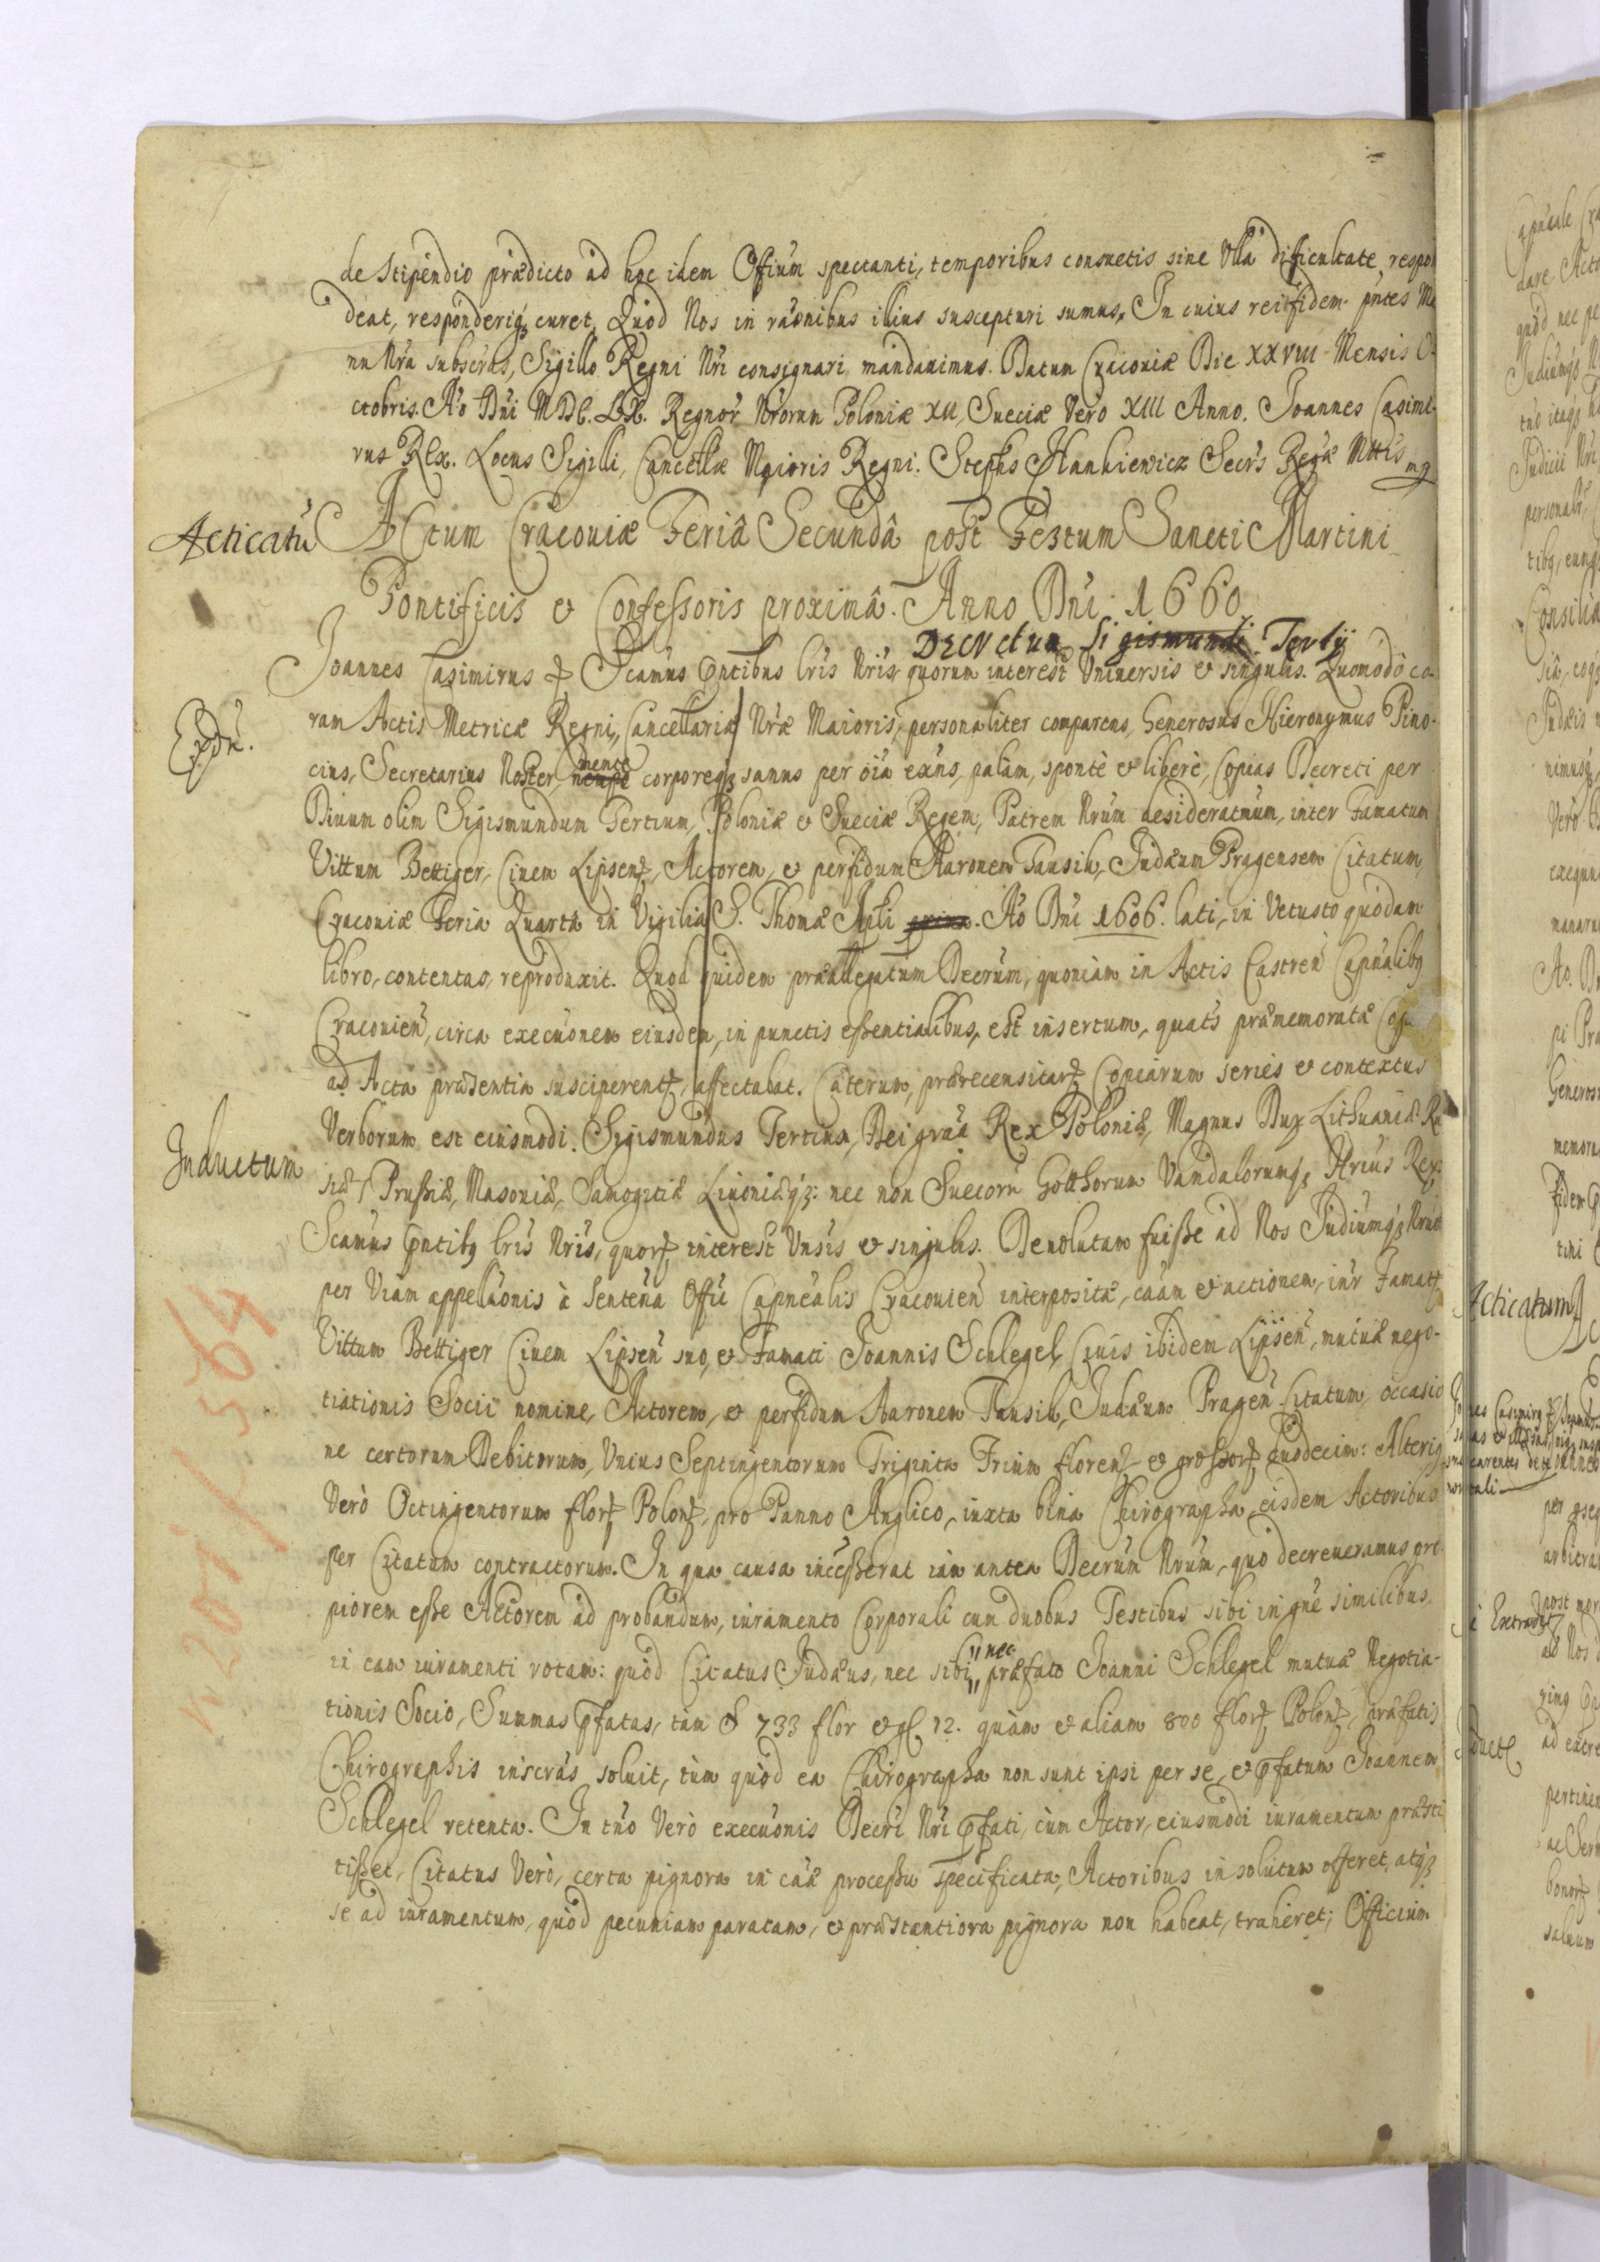 de Stipendio prædicto ad hoc idem Offium spectanti, temporibus consuetis sine Ulla difficultate respon
deat, responderiqz curet, Quod Nos in raonibus illius suscepturi sumus. In cuius rei fidem pntes Ma
nu Nra subscras, Sigillo Regni Nri consignari mandauimus. Datum Cracoviæ Die XXVIII Mensis O-
ctobris. Ao Dni MDC.LX. Regnor Nrorum Poloniæ XII, Sueciæ Vero XIII Anno. Joannes Casimi-
rus REx. Locus Sigilli, Cancellæ Maioris Regni. Stephs Hankiewicz Secrs Regæ Mttis mp
Acticatũ Actum Cracoviæ Feriâ Secundâ post Festum Sancti Martini
Pontificis & Confessoris proximâ. Anno Dni 1660
Decretum Sigismundi Tertij
Joannes Casimirus & Scamus Pntibus lris Nris quorum interest Universis & singulis. Quomodo co-
ram Actis Metricæ Regni, Cancellariæ Nræ Maioris, personaliter comparens, Generosus Hieronymus Pino-
cius, Secretarius Noster, mente corporeqz sanus per oia exns, palam, sponte & libere, Copias Decreti per
Divum olim Sigismundum Tertium, Poloniæ & Sueciæ Regem, Patrem Nrum desideratum, inter Famatum
Vittum Bettiger, Civem Lipsen, Actorem, & perfidum Aaronem Tausik, Judæum Pragensem Citatum,
Cracoviæ Feria Quarta in Vigilia S. Thomæ Apli. Ao Dni 1606. lati, in Vetusto quodam
libro, contentas, reproduxit. Quod quidem præallegatum Decrum, quoniam in Actis Castren Capnalibq
Cracovien, circa execuonem eiusdem, in punctis essentialibus, est insertum, quats præmemoratæ Cop
ad Acta præsentia susciperent, affectabat. Cæterum, prærecensitar Copiarum series & contextus
Verborum est eiusmodi. Sigismundus Tertius, Dei gra Rex Poloniæ, Magnus Dux Lithuaniæ Ru
Inductum
siæ, Prussiæ, Masoviæ, Samogitiæ Livoniæqz: nec non Suecoru Gotthorum Vandalorumqz Hrius Rex
Scamus Pntibq lris Nris, quor interest Vnsis & singulis. Devolutam fuisse ad Nos Judiumqz Nrum
per Viam appellaonis à Sententia Offii Capnealis Cracovien interposita, caam & actionem, intr Famat
Vittum Bettiger Civem Lipsen suo, & Famati Joannis Schlegel, Civis ibidem Lipsen, mutuæ nego-
tiationis Socii nomine, Actorem, & perfidum Aaronem Tausik, Judæum Pragen Citatum, occasio
ne certorum Debitorum, Unius Septingentorum Triginta Trium floren & grossor duodecim: Alteriq
Vero Octingentorum flor Polon, pro Panno Anglico, iuxta bina Chirographa, eisdem Actoribus
per Citatum contractorum. In qua causa incesserat iam antea Decrum Nrum, quo decreveramus pro-
piorem esse Actorem ad probandum, iuramento Corporali cum duobus Testibus sibi in gne similibus
in eam iuramenti rotam: quod Citatus Judæus, nec sibi, nec præfato Joanni Schlegel mutuæ Negotia-
tionis Socio, Summas pfatas, tam 733 flor & gl 12. quam & aliam 800 flor Polon, præfatis
Chirographis inscras soluit, tum quod ea Chirographa non sunt ipsi per se, & pfatum Joannem
Schlegel retenta. In tno Vero execuonis Decri Nri pfati, cum Actor, eiusmodi iuramentum præsti
tisset, Citatus Vero, certa pignora in caæ processu specificata, Actoribus in solutum offeret, atqz
se ad iuramentum, quod pecuniam paratam, & præstantiora pignora non habeat, traheret; Officium
n 201/564
Acticatum